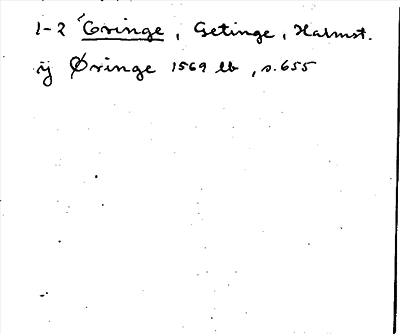 1-2 Eringe, Getinge, Halmst.
ij Øringe 1569 lb, s. 655